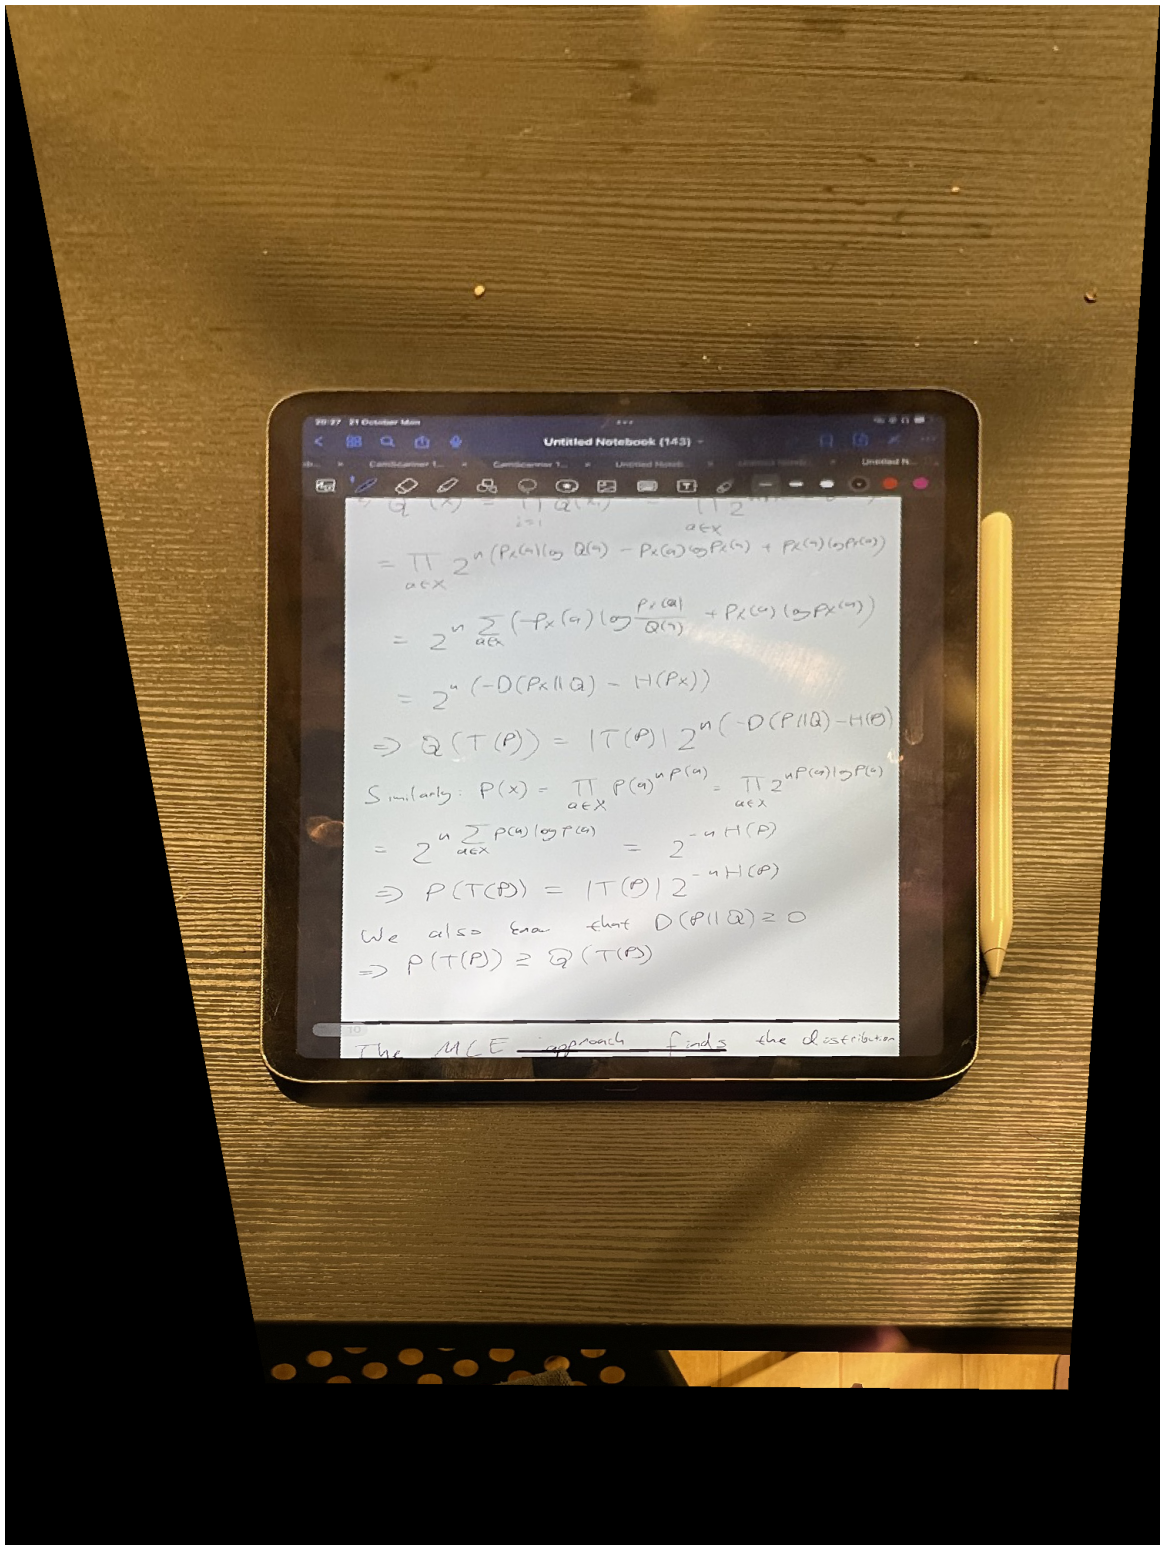 20:27 21 October Mon
Untitled Notebook (143)
CamScanner 1... CamScanner 1... Untitled Noteb... Untitled N...
Q (x) = ∏ Q(xᵢ) ∏ 2
i=1 a∈X
= ∏ 2^n(Pₓ(a)log Q(a) - Pₓ(a)logPₓ(a) + Pₓ(a)logPₓ(a))
a∈X
= 2^n ∑ (-Pₓ(a) log Pₓ(a)/Q(a) + Pₓ(a) logPₓ(a))
a∈X
= 2^n (-D(Pₓ||Q) - H(Pₓ))
=> Q(T(P)) = |T(P)| 2^n(-D(P||Q)-H(P))
Similarly: P(x) = ∏ P(a)^nP(a) = ∏ 2^nP(a)logP(a)
a∈X a∈X
= 2^n ∑ P(a)logP(a) = 2^-nH(P)
a∈X
=> P(T(P)) = |T(P)| 2^-nH(P)
We also know that D(P||Q) ≥ 0
=> P(T(P)) ≥ Q(T(P))
10
The MLE approach finds the distribution